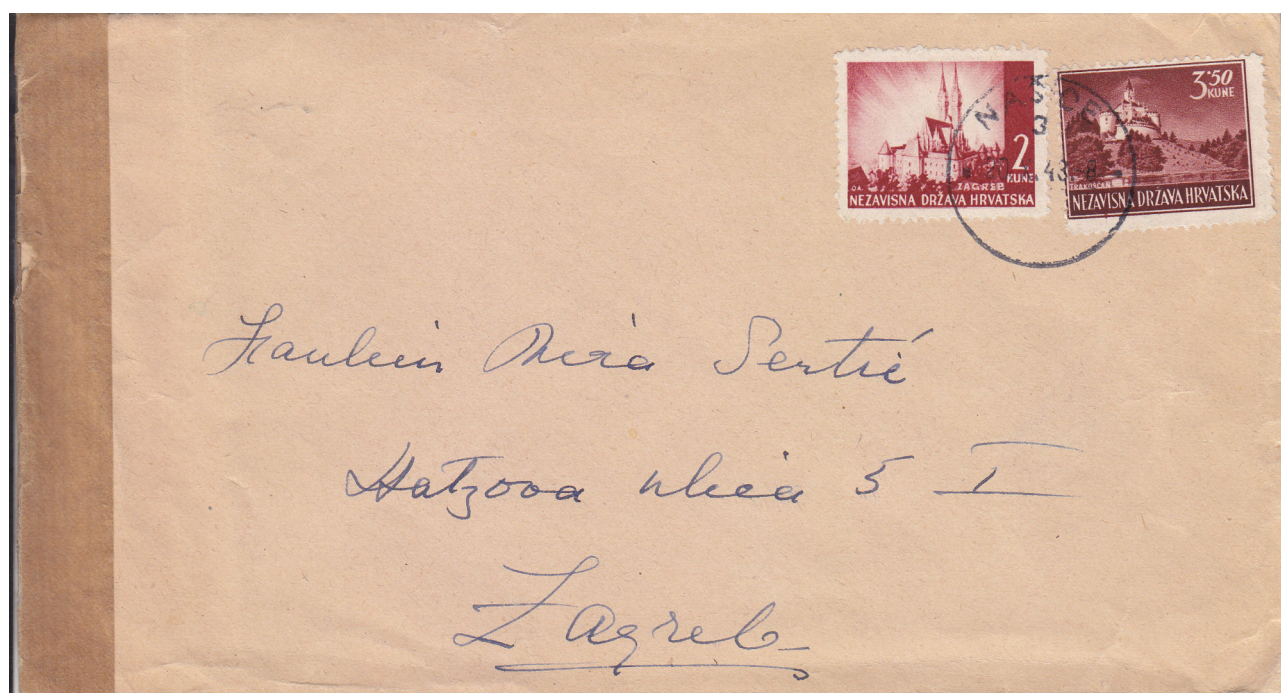 2
KUNE
ZAGREB
NEZAVISNA DRŽAVA HRVATSKA
3'50
KUNE
TRAKOŠĆAN
NEZAVISNA DRŽAVA HRVATSKA
NAŠICE
3
43
8
Fraulein Mira Sertić
Hatzova ulica 5 I
Zagreb